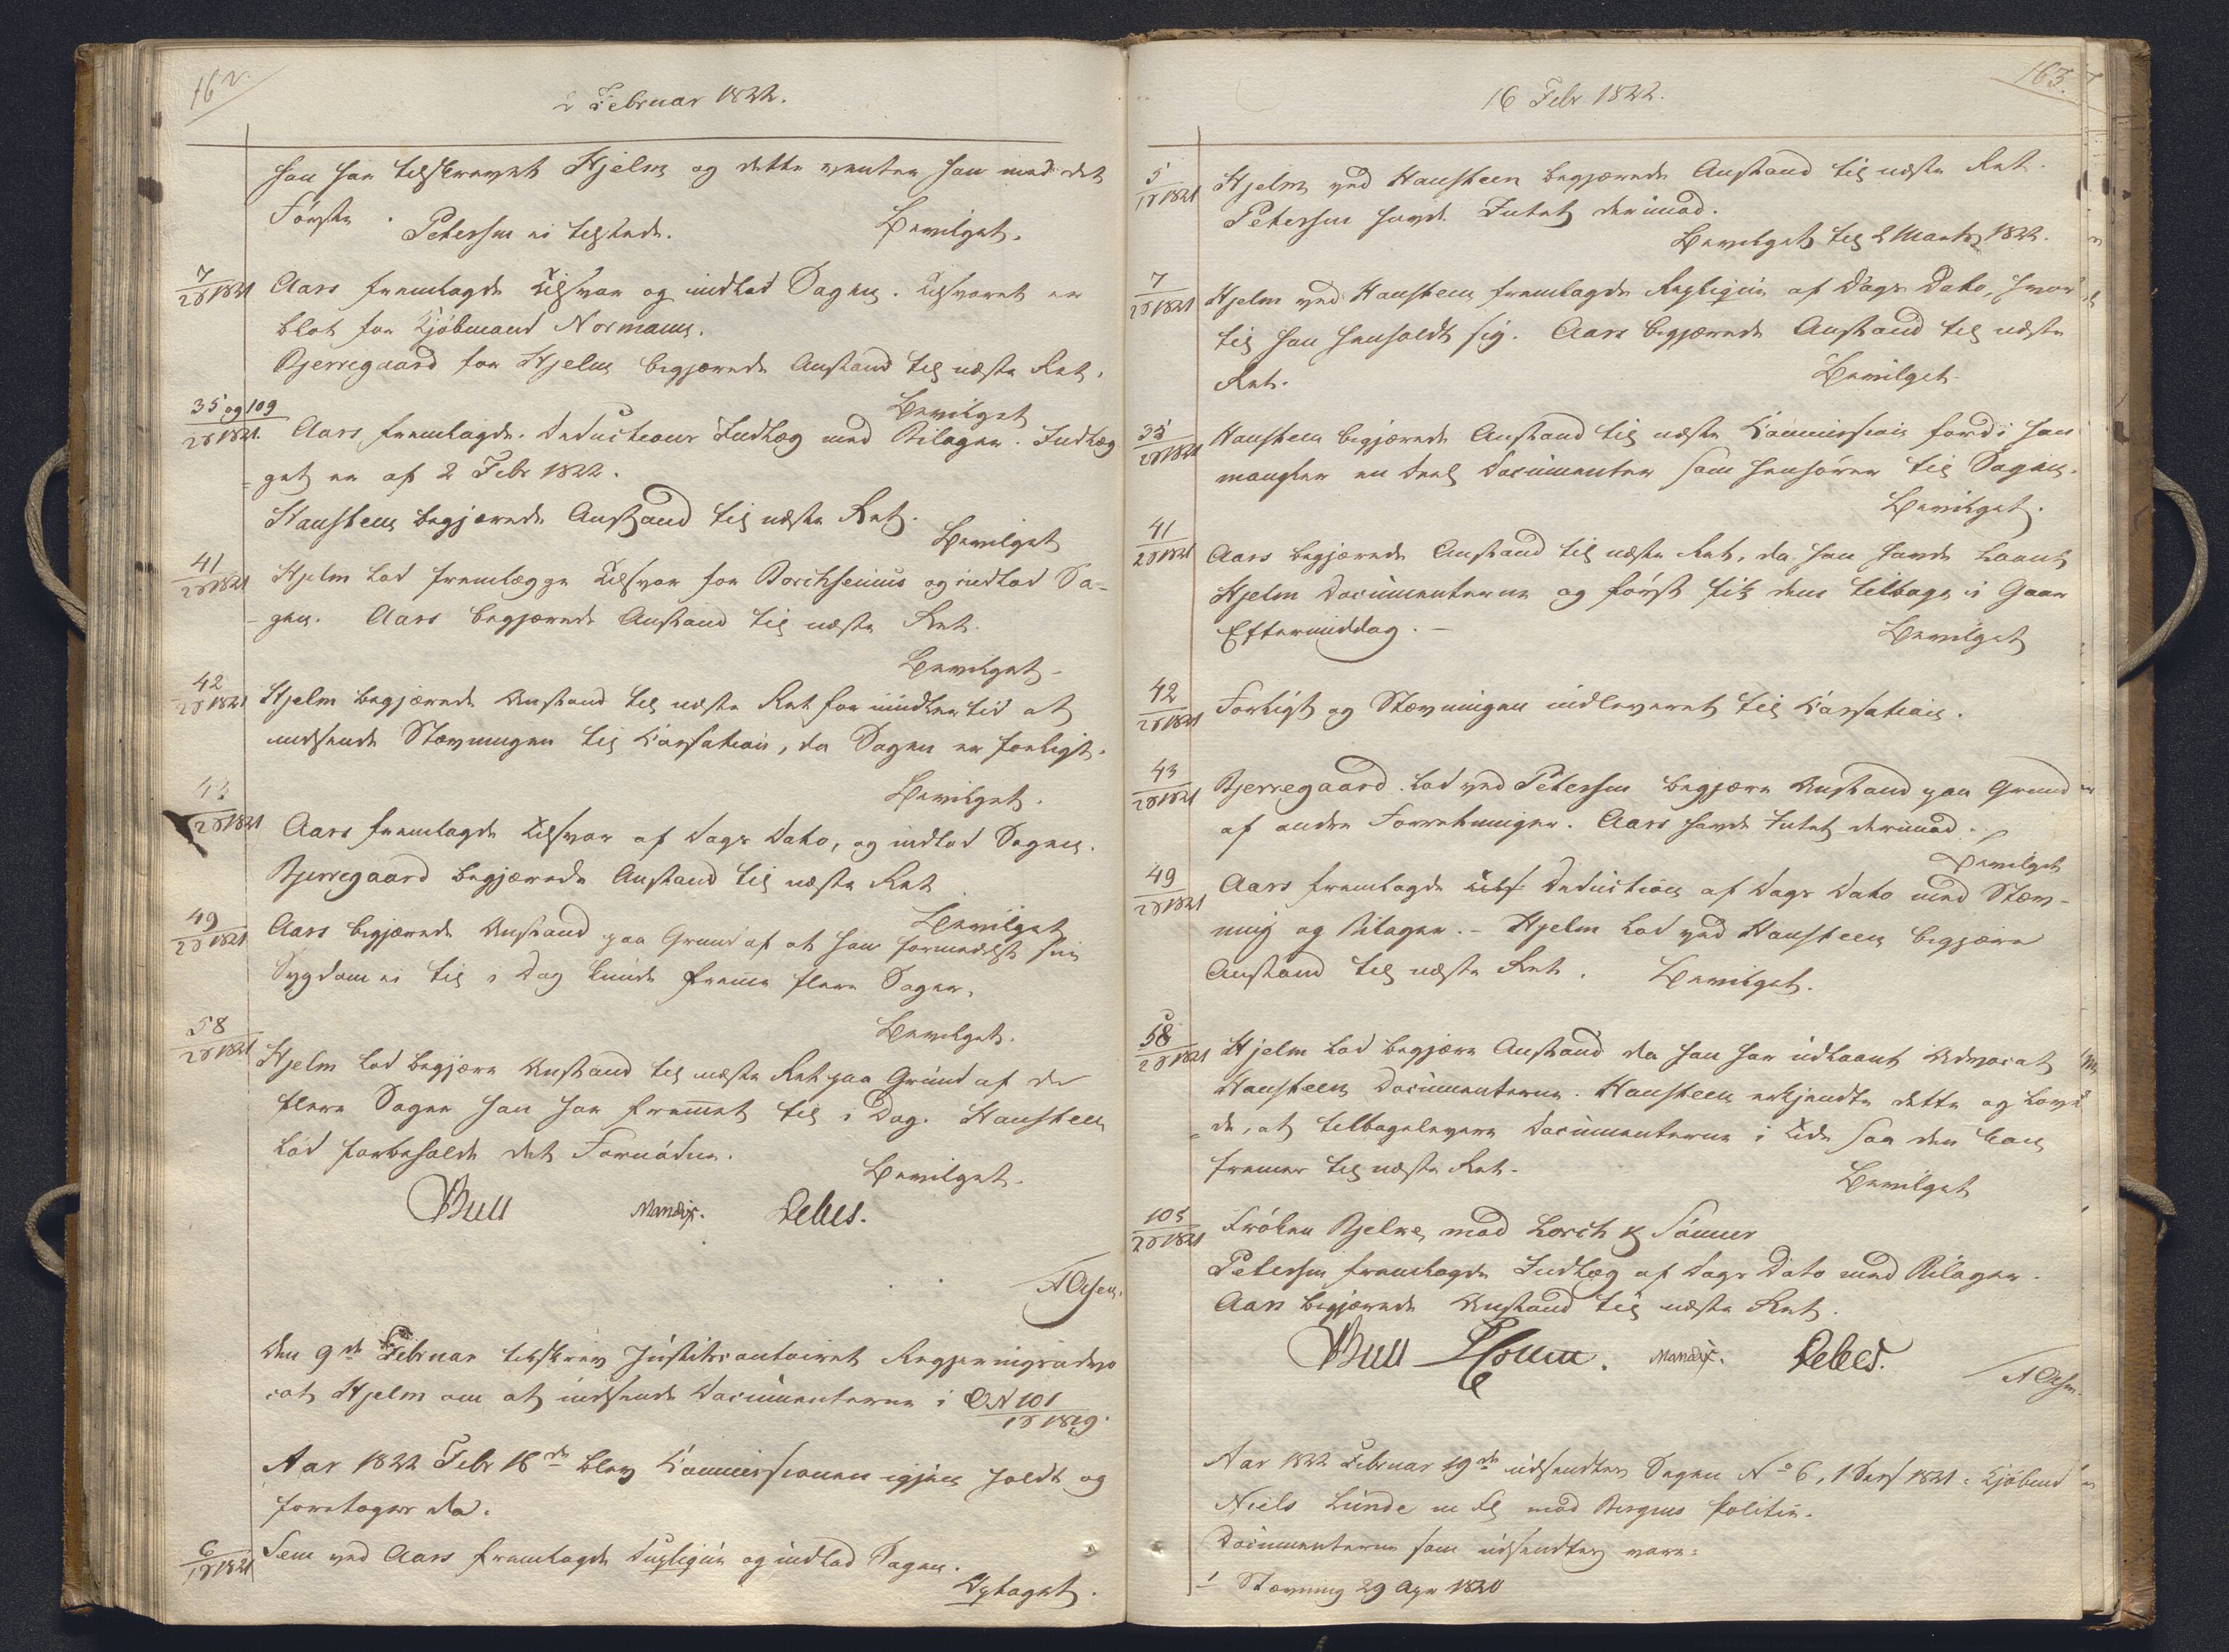 162.
2 Februar 1822.
han har tilskrevet Hjelm og dette venter han med det
Første.
Petersen ei tilstæde. Bevilget.
7/2S 1821 Aars fremlagde Tilsvar og indlod Sagen. Tilsvaret er
blot for Kjøbmand Normann.
Bjerregaard for Hjelm begjærede Anstand til næste Ret.
Bevilget
35 og 109/2S 1821. Aars fremlagde Deductions Indlæg med Bilager. Indlæg
get er af 2 Febr 1822.
Hansteen begjærede Anstand til næste Ret.
Bevilget
41/2S 1821 Hjelm lod fremlægge Tilsvar for Borchsenius og indlod Sa-
gen. Aars begjærede Anstand til næste Ret.
Bevilget
42/2S 1821 Hjelm begjærede Anstand til næste Ret for imidlertid at
indsende Stævningen til Cassation, da Sagen er forligt.
Bevilget.
43/2S 1821 Aars fremlagde Tilsvar af Dags Dato, og indlod Sagen.
Bjerregaard begjærede Anstand til næste Ret
Bevilget
49/2S 1821 Aars begjærede Anstand paa Grund af at han formedelst sin
Sygdom ei til i Dag kunde fremme flere Sager.
Bevilget.
58/2S 1821 Hjelm lod begjære Anstand til næste Ret paa Grund af de
flere Sager han har fremmet til i Dag. Hansteen
lod forbeholde det Fornødne.
Bevilget.
Bull Mandix. Debes.
A Olsen.
Den 9de Februar tilskrev Justitscontoiret Regjeringsadvo
cat Hjelm om at indsende Documenterne i No 101/1S 1819.
Aar 1822 Febr 16de blev Commissionen igjen holdt og
foretoges da:
6/1S 1821 Sem ved Aars fremlagde Dupliqve og indlod Sagen.
Optaget.
163.
16 Febr 1822.
5/1S 1821 Hjelm ved Hansteen begjærede Anstand til næste Ret.
Petersen havde Intet derimod.
Bevilget til 2 Marts 1822.
7/2S 1821 Hjelm ved Hansteen fremlagde Repliqve af Dags Dato, hvor
til han henholdt sig. Aars begjærede Anstand til næste
Ret. Bevilget
35/2S 1821 Hansteen begjærede Anstand til næste Commission fordi han
mangler en Deel Documenter som henhører til Sagen.
Bevilget.
41/2S 1821 Aars begjærede Anstand til næste Ret, da han havde laant
Hjelm Documenterne og først fik dem tilbage i Gaar
Eftermiddag. Bevilget
42/2S 1821 Forligt og Stævningen indleveret til Cassation.
43/2S 1821 Bjerregaard lod ved Petersen begjære Anstand paa Grund
af andre Forretninger. Aars havde Intet derimod.
Bevilget
49/2S 1821 Aars fremlagde Deduction af Dags Dato med Stæv-
ning og Bilager. - Hjelm lod ved Hansteen begjære
Anstand til næste Ret. Bevilget.
58/2S 1821 Hjelm lod begjære Anstand da han har udlaant Advocat
Hansteen Documenterne. Hansteen erkjendte dette og love
de, at tilbagelevere Documenterne i Tide saa den kan
fremmes til næste Ret.
Bevilget
105/2S 1821 Frøken Bjelke mod Lorch & Sønner
Petersen fremlagde Indlæg af Dags Dato med Bilager.
Aars begjærede Anstand til næste Ret.
Bull Mandix. Debes.
A Olsen.
Aar 1822 Februar 19de udsendtes Sagen No 6, 1 Sess 1821: Kjøbmd
Niels Lunde m fl mod Bergens Politie.
Documenterne som udsendtes vare:
1 Stævning 29 Apr 1820